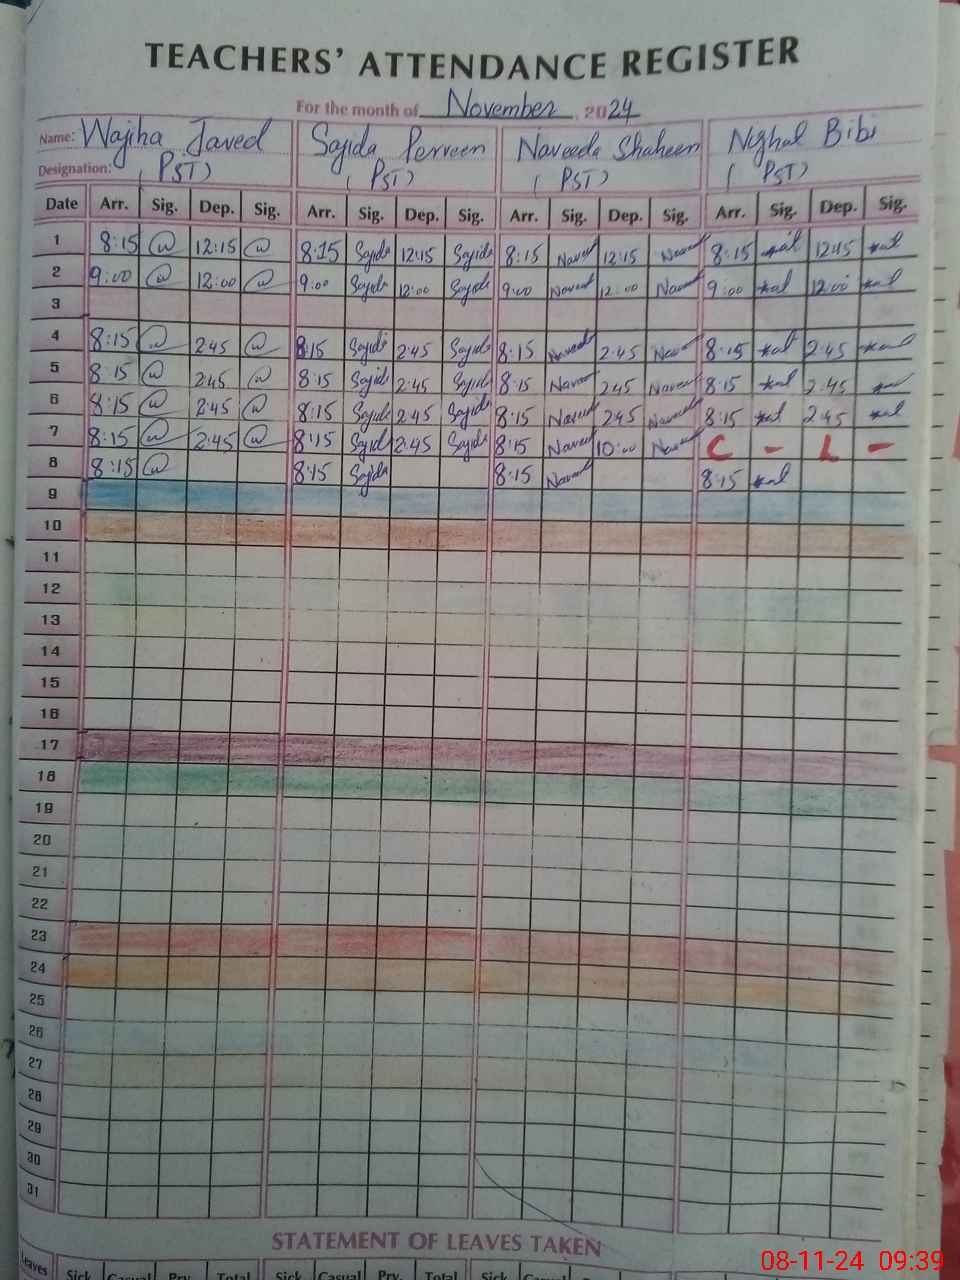 TEACHERS' ATTENDANCE REGISTER
For the month of November, 2024
Name: Wajiha Javed Sajida Perveen Naveeda Shaheen Nighal Bibi
Designation: (PST) (PST) (PST) (PST)
Date Arr. Sig. Dep. Sig. Arr. Sig. Dep. Sig. Arr. Sig. Dep. Sig. Arr. Sig. Dep. Sig.
1 8:15 12:15 8:15 Sajida 12:15 Sajida 8:15 12:15 8:15 12:15
2 9:00 12:00 9:00 Sajida 12:00 Sajida 9:00 12:00 9:00 12:00
3
4 8:15 2:45 8:15 Sajida 2:45 Sajida 8:15 2:45 8:15 2:45
5 8:15 2:45 8:15 Sajida 2:45 Sajida 8:15 2:45 8:15 2:45
6 8:15 2:45 8:15 Sajida 2:45 Sajida 8:15 2:45 8:15 2:45
7 8:15 2:45 8:15 Sajida 2:45 Sajida 8:15 10:00 C - L -
8 8:15 8:15 Sajida 8:15 8:15
9
10
11
12
13
14
15
16
17
18
19
20
21
22
23
24
25
26
27
28
29
30
31
STATEMENT OF LEAVES TAKEN
Leaves Sick Casual Prv. Total Sick Casual Prv. Total Sick
08-11-24 09:39